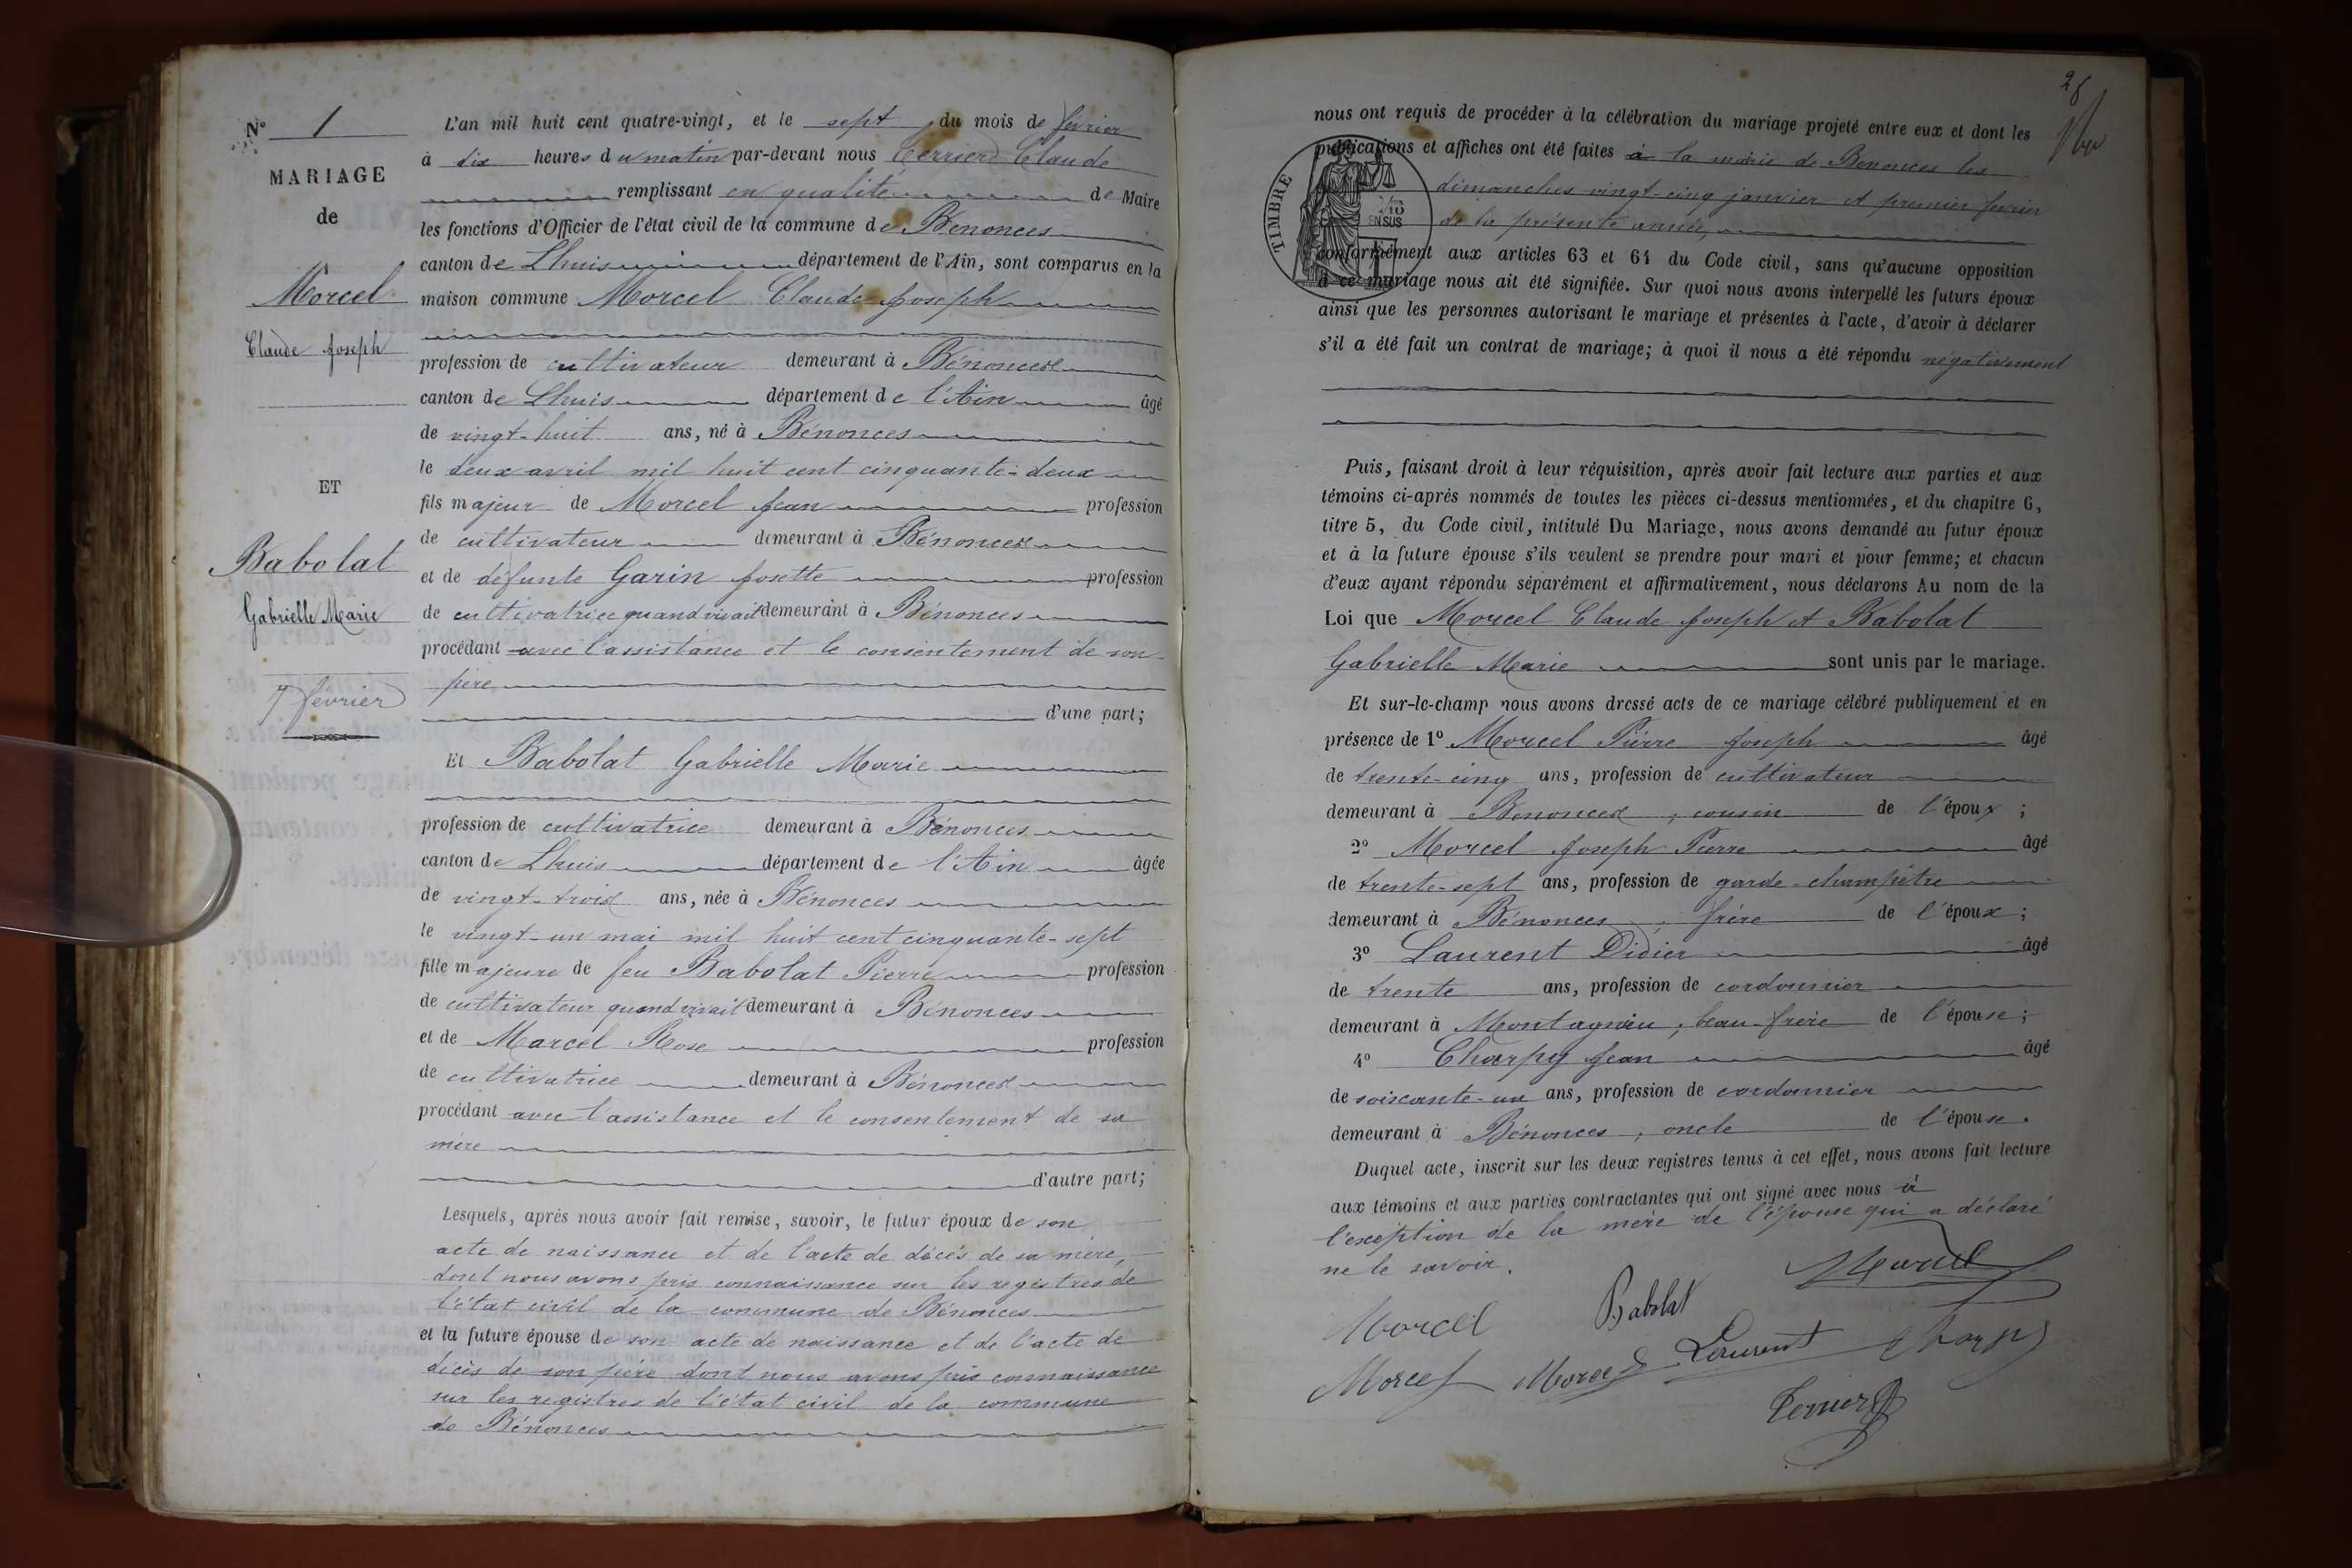 N° 1
MARIAGE
de
Morcel
Claude Joseph
ET
Babolat
Gabrielle Marie
7 février
L'an mil huit cent quatre-vingt, et le sept du mois de février
à dix heures du matin par-devant nous Perrier Claude
remplissant en qualité de Maire
les fonctions d'Officier de l'état civil de la commune de Bénonces
canton de Lhuis département de l'Ain, sont comparus en la
maison commune Morcel Claude Joseph
profession de cultivateur demeurant à Bénonces
canton de Lhuis département de l'Ain âgé
de vingt-huit ans, né à Bénonces
le deux avril mil huit cent cinquante-deux
fils majeur de Morcel Jean profession
de cultivateur demeurant à Bénonces
et de défunte Garin Josette profession
de cultivatrice quand vivait demeurant à Bénonces
procédant avec l'assistance et le consentement de son
père
d'une part;
Et Babolat Gabrielle Marie
profession de cultivatrice demeurant à Bénonces
canton de Lhuis département de l'Ain âgée
de vingt-trois ans, née à Bénonces
le vingt-un mai mil huit cent cinquante-sept
fille majeure de feu Babolat Pierre profession
de cultivateur quand vivait demeurant à Bénonces
et de Marcel Rose profession
de cultivatrice demeurant à Bénonces
procédant avec l'assistance et le consentement de sa
mère
d'autre part;
Lesquels, après nous avoir fait remise, savoir, le futur époux de son
acte de naissance et de l'acte de décès de sa mère,
dont nous avons pris connaissance sur les registres de
l'état civil de la commune de Bénonces
et la future épouse de son acte de naissance et de l'acte de
décès de son père dont nous avons pris connaissance
sur les registres de l'état civil de la commune
de Bénonces
28
nous ont requis de procéder à la célébration du mariage projeté entre eux et dont les
publications et affiches ont été faites à la mairie de Bénonces les
dimanches vingt-cinq janvier et premier février
de la présente année,
TIMBRE
EN SUS
conformément aux articles 63 et 64 du Code civil, sans qu'aucune opposition
à ce mariage nous ait été signifiée. Sur quoi nous avons interpellé les futurs époux
ainsi que les personnes autorisant le mariage et présentes à l'acte, d'avoir à déclarer
s'il a été fait un contrat de mariage; à quoi il nous a été répondu négativement
Puis, faisant droit à leur réquisition, après avoir fait lecture aux parties et aux
témoins ci-après nommés de toutes les pièces ci-dessus mentionnées, et du chapitre 6,
titre 5, du Code civil, intitulé Du Mariage, nous avons demandé au futur époux
et à la future épouse s'ils veulent se prendre pour mari et pour femme; et chacun
d'eux ayant répondu séparément et affirmativement, nous déclarons Au nom de la
Loi que Morcel Claude Joseph et Babolat
Gabrielle Marie sont unis par le mariage.
Et sur-le-champ nous avons dressé acts de ce mariage célébré publiquement et en
présence de 1° Morcel Pierre Joseph âgé
de trente-cinq ans, profession de cultivateur
demeurant à Bénonces ; cousin de l'époux ;
2° Morcel Joseph Pierre âgé
de trente-sept ans, profession de garde-champêtre
demeurant à Bénonces ; frère de l'époux ;
3° Laurent Didier âgé
de trente ans, profession de cordonnier
demeurant à Montagnieu ; beau-frère de l'épouse ;
4° Charpy Jean âgé
de soixante-un ans, profession de cordonnier
demeurant à Bénonces ; oncle de l'épouse.
Duquel acte, inscrit sur les deux registres tenus à cet effet, nous avons fait lecture
aux témoins et aux parties contractantes qui ont signé avec nous à
l'exception de la mère de l'épouse qui a déclaré
ne le savoir.
Morcel
Morcel Babolat
Morcel Morcel Laurent Charpy
Perrier